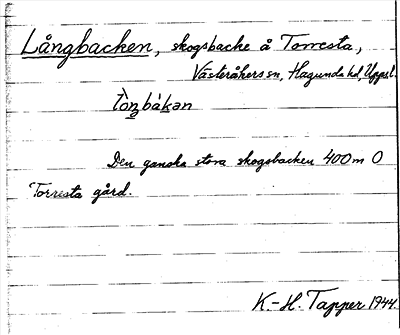 Långbacken, skogsbacke å Torresta,
Västeråkers sn, Hagunda hd, Uppsl.
Den ganska stora skogsbacken 400 m O
Torresta gård.
K.-H. Tapper 1944.